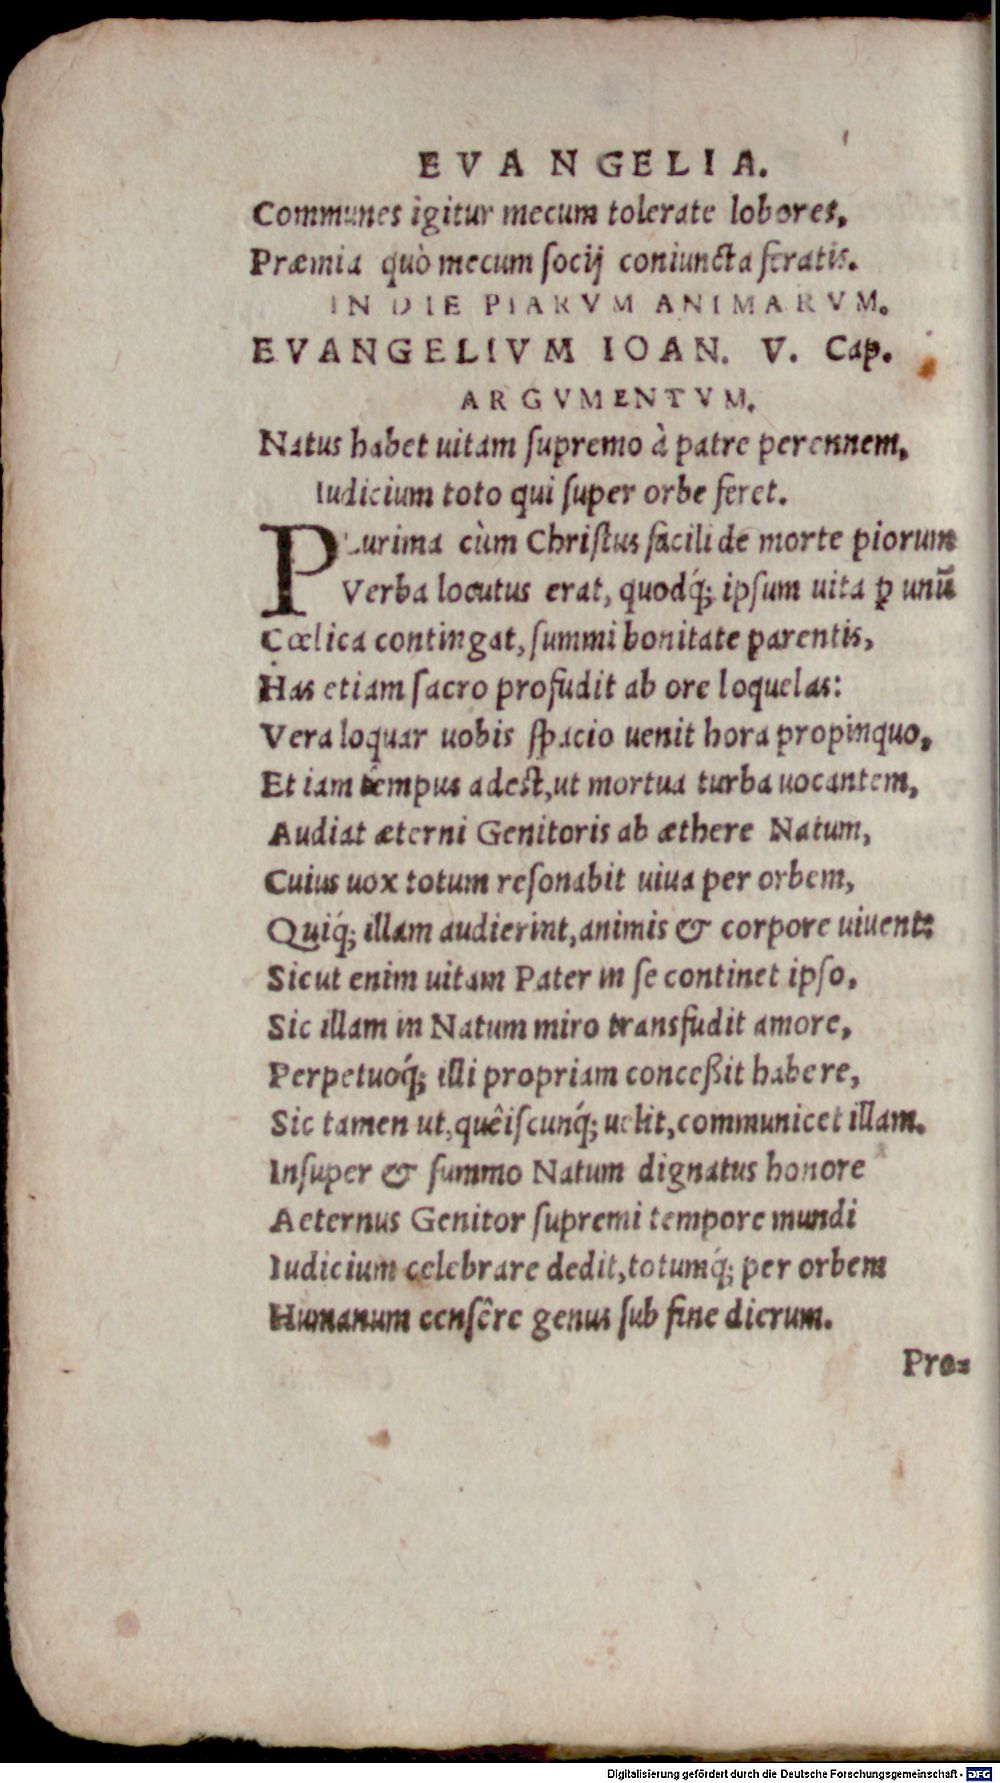 EVANGELIA.
Communes igitur mecum tolerate lobores,
Præmia quò mecum ſocij coniuncta feratis.
IN DIE PIARVM ANIMARVM.
EVANGELIVM IOAN. V. Cap.
ARGVMENTVM.
Natus habet uitam ſupremo à patre perennem,
Iudicium toto qui ſuper orbe feret.
PLurima cùm Chriſtus facili de morte piorum
Verba locutus erat, quodq́; ipſum uita ꝑ unũ
Cœlica contingat, ſummi bonitate parentis,
Has etiam ſacro profudit ab ore loquelas:
Vera loquar uobis ſpacio uenit hora propinquo,
Et iam tempus adeſt, ut mortua turba uocantem,
Audiat æterni Genitoris ab æthere Natum,
Cuius uox totum reſonabit uiua per orbem,
Quiq́; illam audierint, animis & corpore uiuent:
Sicut enim uitam Pater in ſe continet ipſo,
Sic illam in Natum miro transfudit amore,
Perpetuoq́; illi propriam conceßit habere,
Sic tamen ut, quêiſcunq́; uelit, communicet illam.
Inſuper & ſummo Natum dignatus honore
Aeternus Genitor ſupremi tempore mundi
Iudicium celebrare dedit, totumq́; per orbem
Humanum cenſêre genus ſub fine dierum.
Pro-
Digitalisierung gefördert durch die Deutsche Forschungsgemeinschaft - DFG